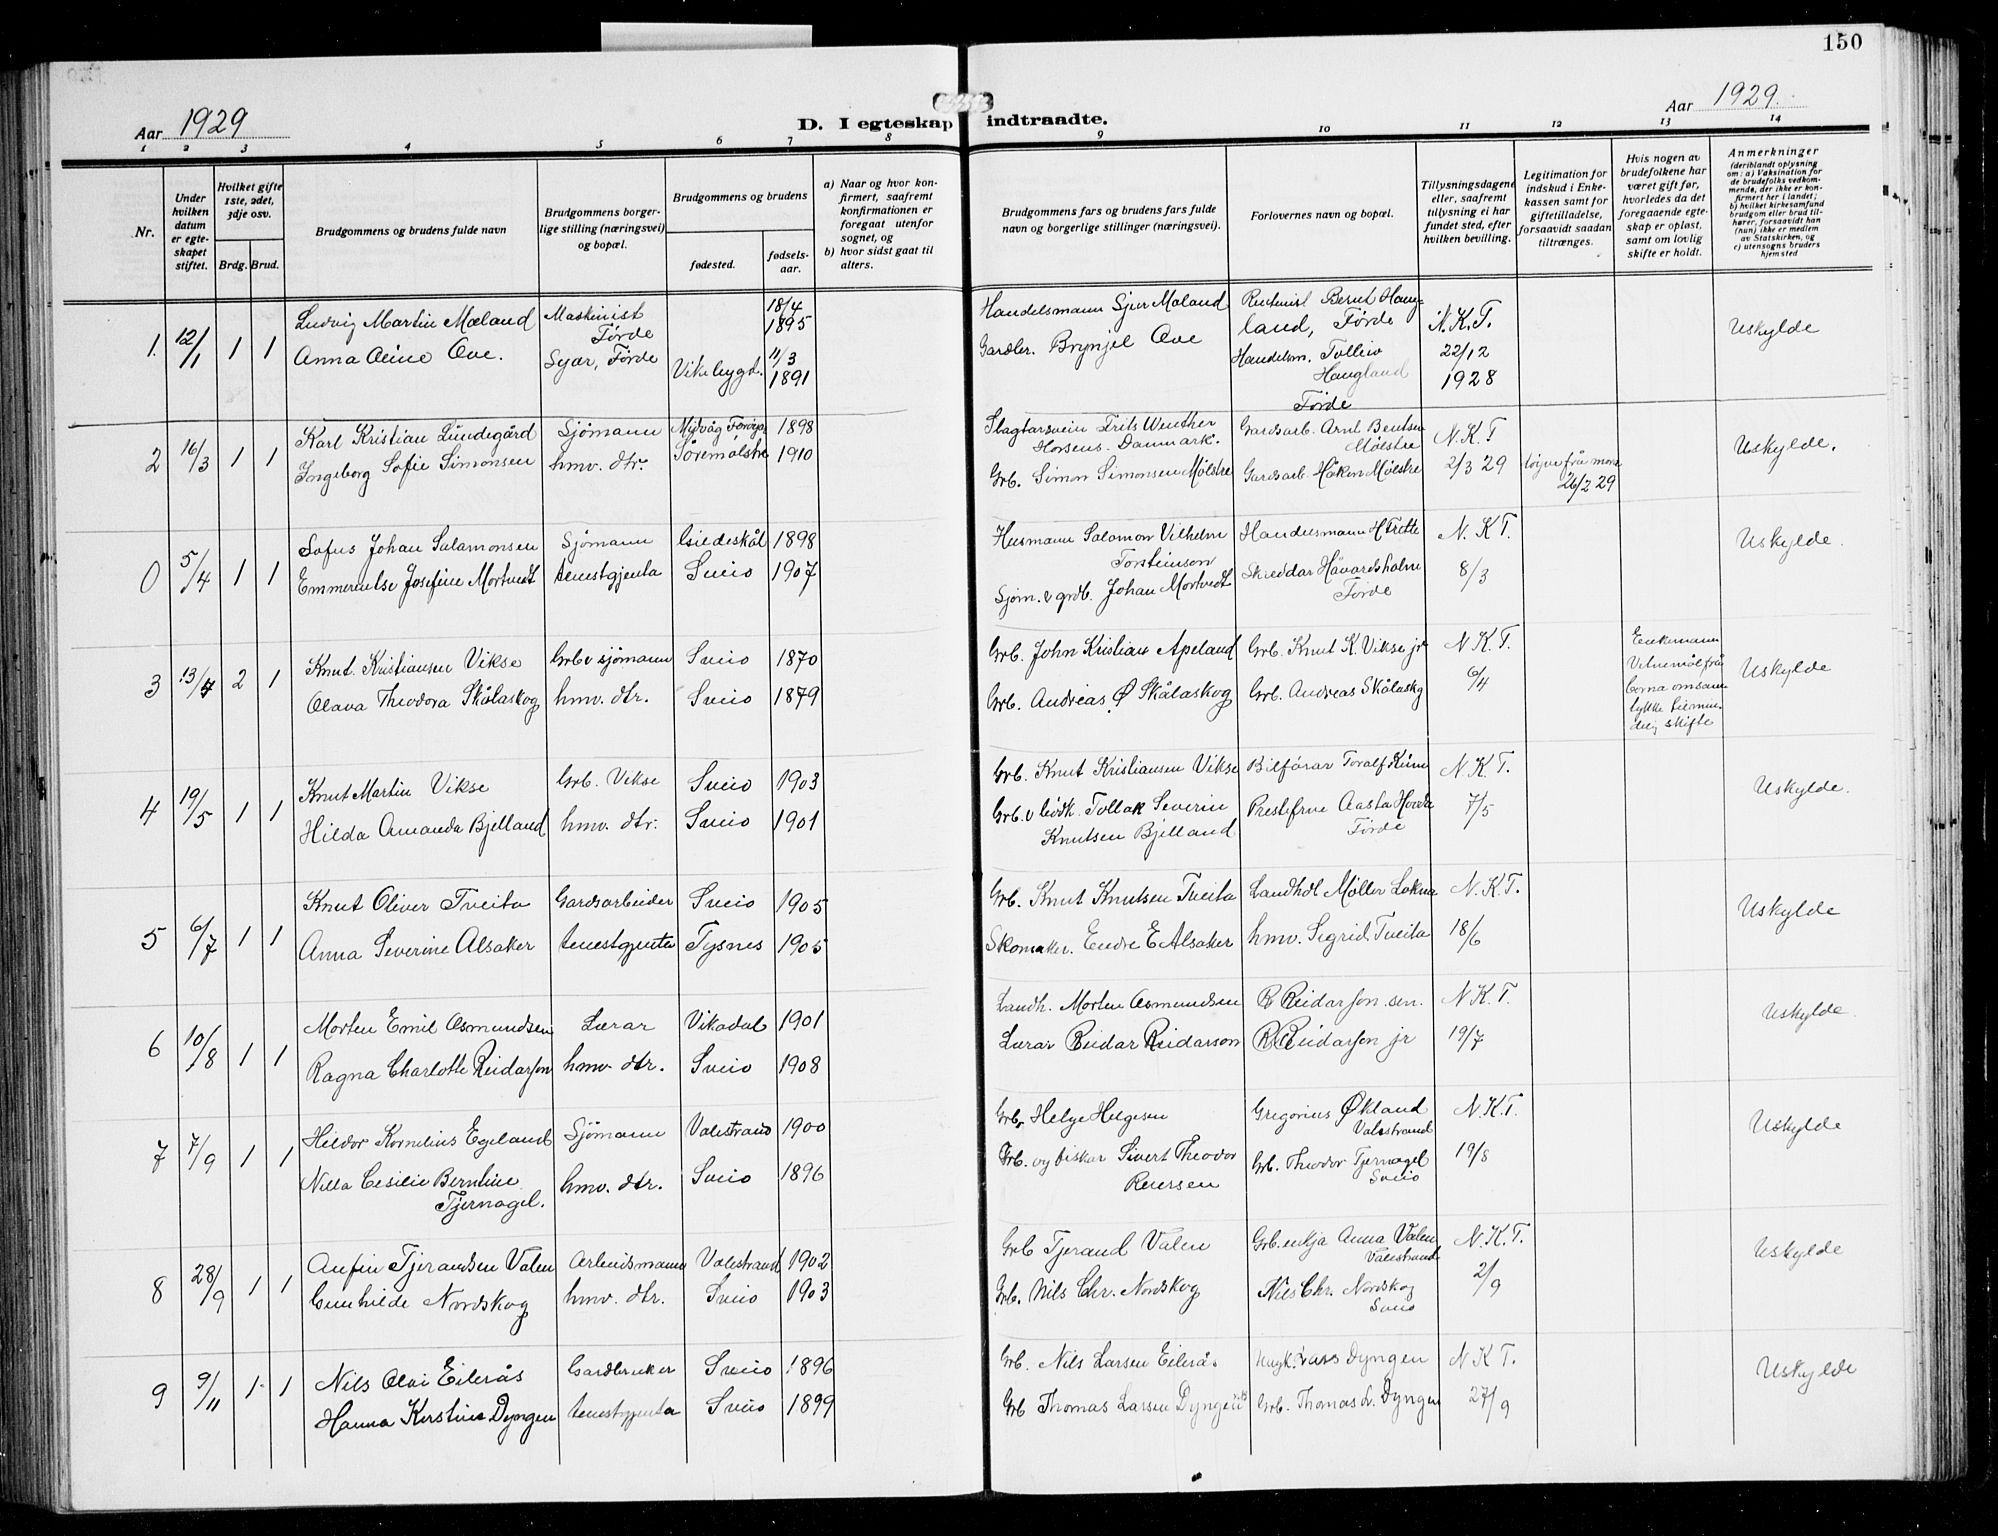 150
Aar 1929
Aar 1929.
D. I egteskap indtraadte.
1 2 3 4 5 6 7 8 9 10 11 12 13 14
Nr.
Under hvilken datum er egteskapet stiftet.
Hvilket gifte 1ste, 2det, 3dje osv.
Brdg. Brud.
Brudgommens og brudens fulde navn
Brudgommens borgerlige stilling (næringsvei) og bopæl.
Brudgommens og brudens
fødested.
fødselsaar.
a) Naar og hvor konfirmert, saafremt konfirmationen er foregaat utenfor sognet, og
b) hvor sidst gaat til alters.
Brudgommens fars og brudens fars fulde navn og borgerlige stillinger (næringsvei).
Forlovernes navn og bopæl.
Tillysningsdagene eller, saafremt tillysning ei har fundet sted, efter hvilken bevilling.
Legitimation for indskud i Enkekassen samt for giftetilladelse, forsaavidt saadan tiltrænges.
Hvis nogen av brudefolkene har været gift før, hvorledes da det foregaaende egteskap er opløst, samt om lovlig skifte er holdt.
Anmerkninger (deriblandt oplysning om: a) Vaksination for de brudefolks vedkommende, der ikke er konfirmert her i landet; b) hvilket kirkesamfund brudgom eller brud tilhører, forsaavidt han (hun) ikke er medlem av Statskirken, og c) utensogns bruders hjemsted
1. 12/1 1 1 Ludvig Martin Mæland Maskinist Førde 18/4 1895 Handelsmann Sjur Mæland Bernt Haugland, Førde N.K.T. Uskylde
Anna Oline Ove. Syer, Førde Vikebygd. 11/3 1891 Gardbr. Brynjel Ove Handelsm. Tolleiv Haugland Førde 22/12 1928
2 16/3 1 1 Karl Kristian Lundegård Sjömann 1898 Slagtarsvein Frits Wenther Horsens. Danmark. Gardsarb. Arnt Bentsen Mølstre N.K.T Uskylde.
Ingeborg Sofie Simonsen hmv. dtr. Søremölstre 1910 Grb. Simon Simonsen Mølstre Gardsarb Håkon Mølstre 2/3 29 løyve frå mora 26/2 29
0 5/4 1 1 Sofus Johan Salamonsen Sjömann Gildeskål 1898 Husmann Salomon Vilhelm Torsteinson Handelsmann H Trette N.K.T. Uskylde.
Emmerentse Josefine Mortvedt tenestgjenta Sveio 1907 Sjøm. & grdb. Johan Mortvedt Skreddar Håvardsholm Førde 8/3
3 13/4 2 1 Knut Kristiansen Vikse Grb v sjömann Sveio 1870 Grb. John Kristian Apeland Grb. Knut K. Vikse jr N.K.T. Enkemann Vitnemål frå borna om samtykke til skifte Uskylde
Olava Theodora Skålaskog hmv. dtr. Sveio 1879 Grb. Andreas Ø Skålaskog Grb. Andreas Skålaskg 6/4
4 19/5 1 1 Knut Martin Vikse Grb. Vikse Sveio 1903 Grb. Knut Kristiansen Vikse Bilförar Toralf N.K.T. Uskylde.
Hilda Amanda Bjelland hmv. dtr. Sveio 1901 Grb. v Tollak Severin Knutsen Bjelland Prestefrue Aasta Førde 7/5
5 6/7 1 1 Knut Oliver Tveita Gardsarbeider Sveio 1905 Grb. Knut Knutsen Tveita Landhdl Møller Lokna N.K.T. Uskylde
Anna Severine Alsaker tenestgjenta Tysnes 1905 Skomaker. Endre E Alsaker hmv. Sigrid Tveita 18/6
6 10/8 1 1 Morten Emil Osmundsen Lærar Vikadal 1901 Landh. Morten Osmundsen R Reidarson sen. N.K.T. Uskylde.
Ragna Charlotte Reidarson hmv. dtr. Sveio 1908 Lærar Reidar Reidarson R Reidarson jr 19/7
7 7/9 1 1 Hildor Kornelius Egeland Sjömann Valestrand 1900 Grb. Helge Helgesen Gregorius Økland Valestrand N.K.T. Uskylde
Nilla Cesilie Berntine Tjernagel. hmv. dtr. Sveio 1896 Grb. og fiskar Sivert Theodor Reiersen Grb. Theodor Tjernagel Sveio 19/8
8 28/9 1 1 Anfin Tjerandsen Valen Arbeidsmann Valestrand 1902 Grb Tjerand Valen Grb.enkja Anna Valen Valestrand N.K.T. Uskylde
Gunhilde Nordskog hmv. dtr. Sveio 1903 Grb. Nils Chr. Nordskog Nils Chr. Nordskog Sveio 2/9
9 9/11 1 1 Nils Olai Eilerås Gardbruker Sveio 1896 Grb. Nils Larsen Eilerås Lars Dyngen N.K.T. Uskylde
Hanna Kerstine Dyngen tenestgjenta Sveio 1899 Grb Thomas Larsen Dyngen Grb. Thomas L. Dyngen 27/9